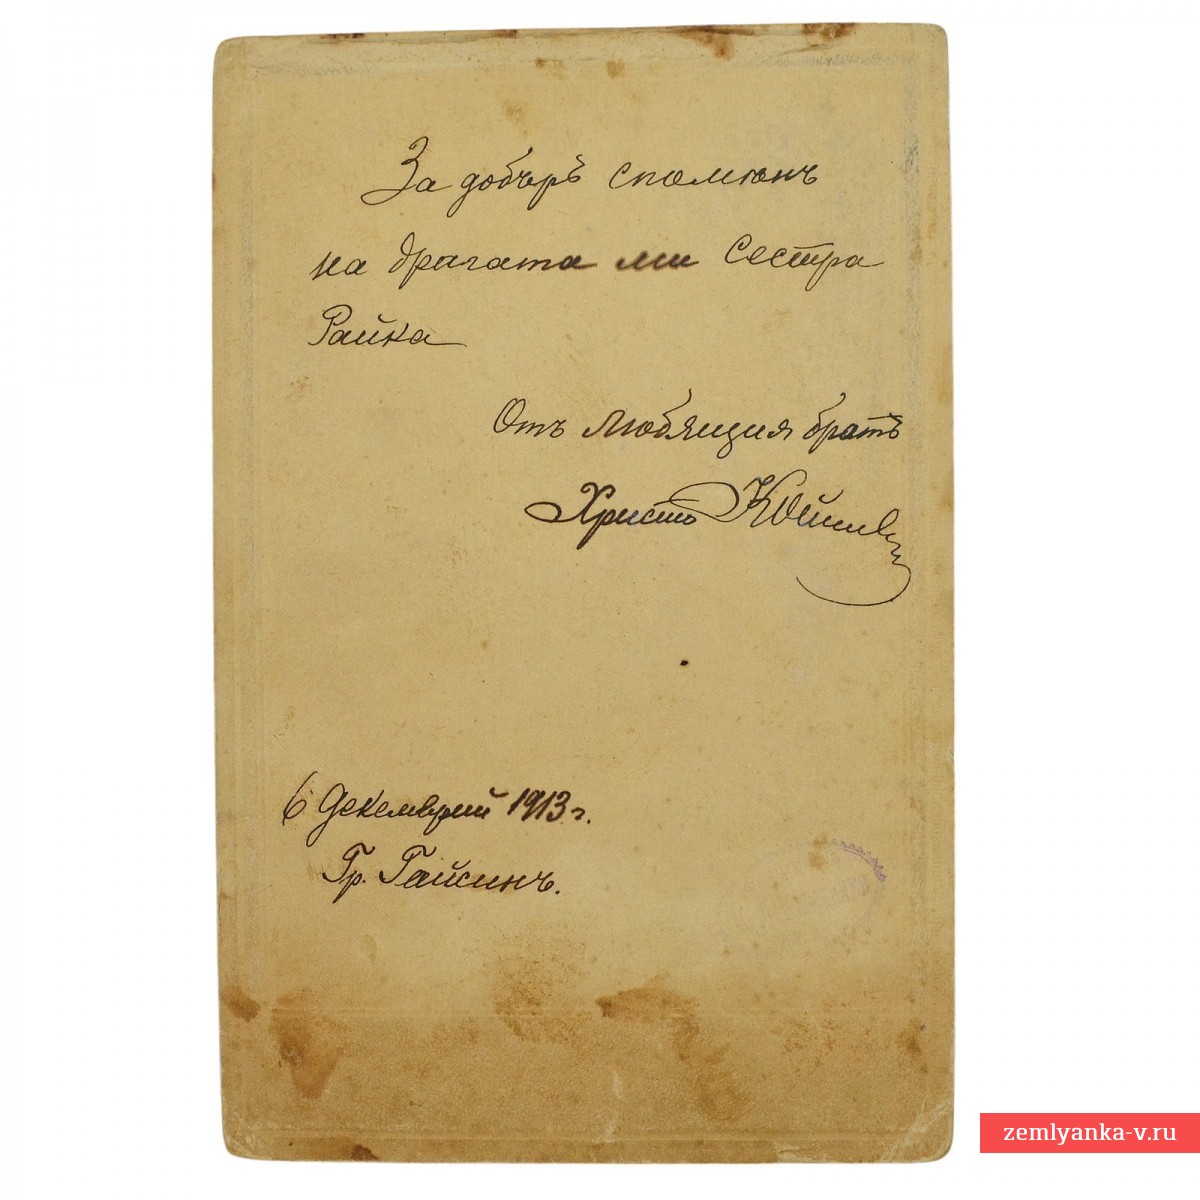 За добъръ споменъ
на драгата ми Сестра
Райка
Отъ любящия братъ
Христо
6 Декемврий 1913 г.
Гр. Гайсинъ.
zemlyanka-v.ru